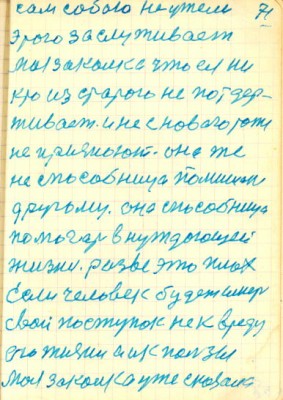 сам собою неужели 71
этого заслуживает
моя законка что ея ни
кто из старого не поддер-
живает. и не с новаго тоже
не принімают. она же
не способница
другому. она способница
помогат в нуждающей
жизни. разве это плох
если человек будет имет
свой поступок не к вреду
а к ползи
моя законка уже сновала